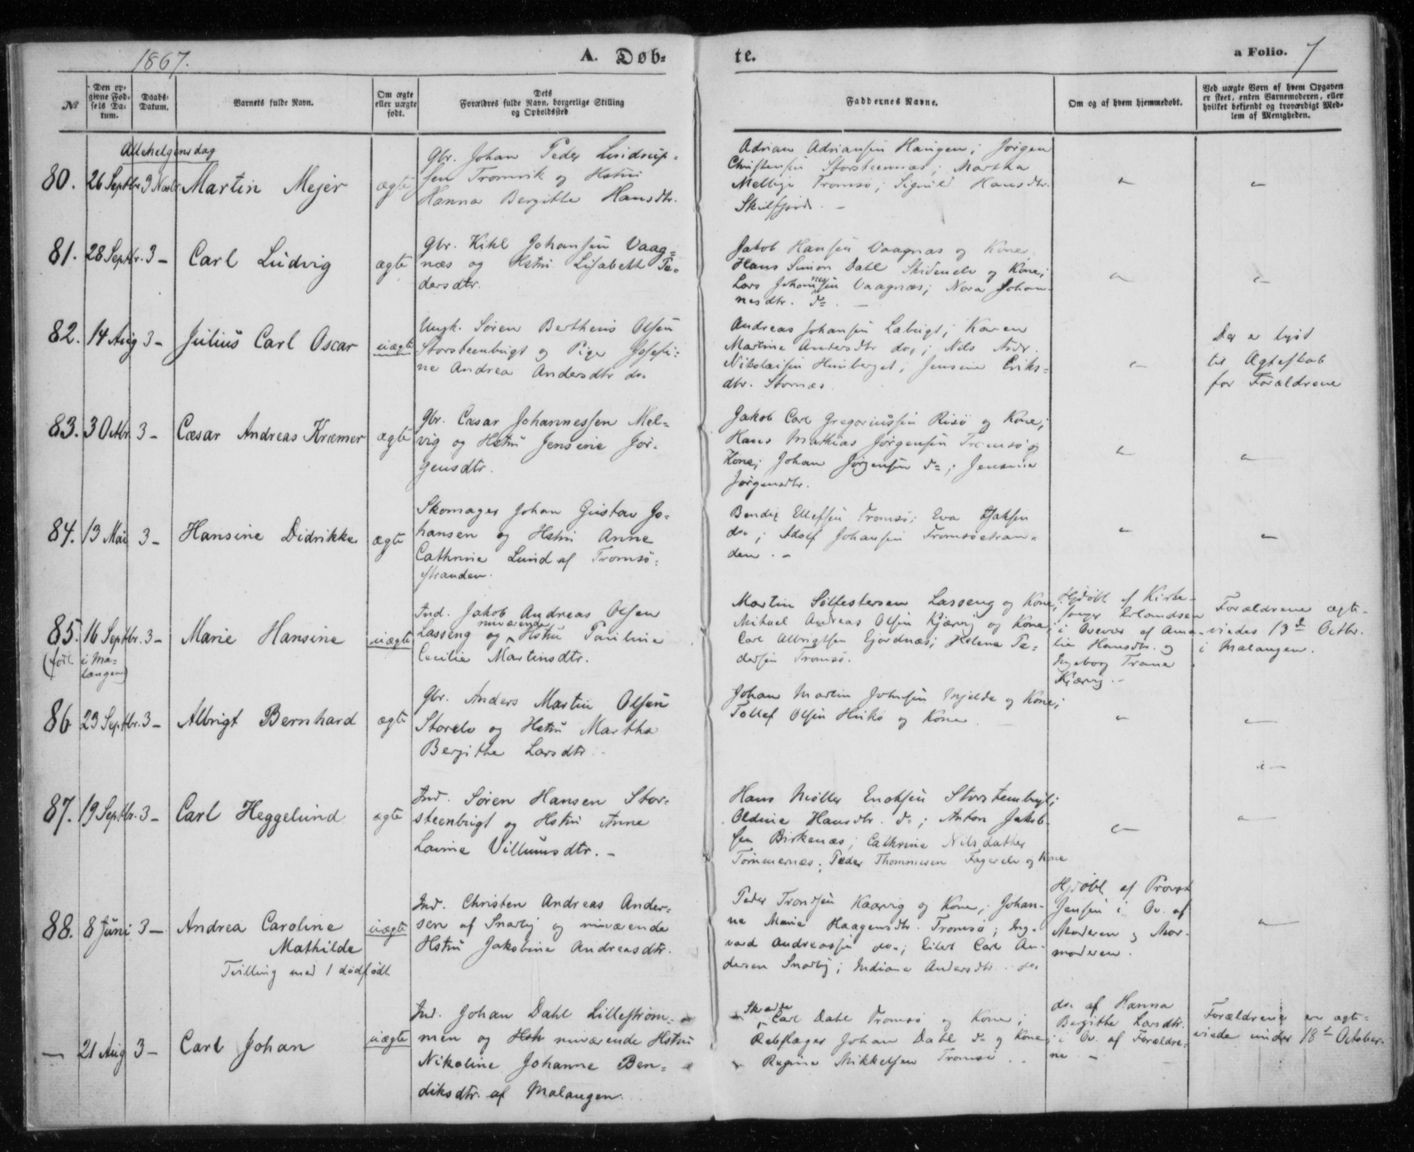 1867.
A. Døb-
te.
a Folio. 7
№
Den opgivne Fødsels Datum.
Daabs-Datum.
Barnets fulde Navn.
Om ægte eller uægte født.
Dets Forældres fulde Navn, borgerlige Stilling og Opholdssted
Faddernes Navne.
Om og af hvem hjemmedøbt.
Ved uægte Børn af hvem Opgaven er skeet, enten Barnemoderen, eller hvilket bekjendt og troværdigt Medlem af Menigheden.
Allehelgensdag
80. 26 Septbr. 3 Novbr. Martin Mejer ægte
Gbr. Johan Peder Lindrup-
sen Tromvik og Hstru
Hanna Bergitte Hansdtr.
Adrian Adriansen Haugen; Jørgen
Christensen Storsteennæs; Martha
Melbye Tromsø; Sigrid Hansdtr.
Skulsfjord. -
81. 28 Septbr. 3 - Carl Ludvig ægte
Gbr. Kihl Johansen Vaag-
næs og Hstru Lisabeth Pe-
dersdtr.
Jakob Hansen Vaagnæs og Kone,
Hans Simon Dahl Skidenelv og Kone;
Lars Johannesen Vaagnæs; Nora Johan-
nesdtr. do. -
82. 14 Aug 3 - Julius Carl Oscar uægte
Ungk. Søren Bertheus Olsen
Storsteenbugt og Pige Josefi-
ne Andrea Andersdtr do.
Andreas Johansen Labugt; Karen
Martine Andersdtr do.; Nils Andr.
Nikolaisen Hunberget; Jensine Eriks-
dtr. Stornæs.
Der er lyst
til Ægteskab
for Forældrene
83. 3 Octbr. 3 - Cæsar Andreas Kræmer ægte
Gbr. Cæsar Johannessen Mel-
vig og Hstru Jensine Jør-
gensdtr.
Jakob Carl Gregoriussen Risø og Kone;
Hans Mathias Jørgensen Tromsø og
Kone; Johan Jørgensen do.; Jensine
Jørgensdtr.
84. 13 Mai 3 - Hansine Didrikke ægte
Skomager Johan Gustav Jo-
hansen og Hstru Anne
Cathrine Lund af Tromsø-
stranden.
Bendix Ellefsen Tromsø; Eva
do.; Adolf Johansen Tromsøstran-
den. -
85. 16 Septbr. 3 - Marie Hansine uægte
(født i Ma-
langen)
Ind. Jakob Andreas Olsen
Lasseng og nuværende Hstru Pauline
Cecilie Martinsdtr.
Martin Silfestersen Lasseng og Kone;
Mikael Andreas Olsen Kjærvig og Kone;
Carl Albrigtsen Gjordnæs; Helene Pe-
dersen Tromsø.
Hjdøbt af Kirke-
sanger Erlandsen
i Overvær af Ama-
lie Hansdtr. og
Ingeborg
Kjærvig. -
Forældrene ægte-
viedes 13de Octbr.
i Malangen.
86 23 Septbr. 3 - Albrigt Bernhard ægte
Gbr. Anders Martin Olsen
Storelv og Hstru Martha
Bergithe Larsdtr.
Johan Martin Johnsen Mjelde og Kone;
Tollef Olsen og Kone.
87. 19 Septbr. 3 - Carl Heggelund ægte
Ind. Søren Hansen Stor-
steenbugt og Hstru Anne
Lovine Villumsdtr. -
Hans Møller Enoksen Storsteenbugt;
Oldine Hansdtr. do.; Anton Jakob-
sen Birkenæs; Cathrine Nilsdatter
Tømmernæs; Peder Thommesen Fagerelv og Kone
88. 8 Juni 3 - Andrea Caroline
Mathilde uægte
Tvilling med 1 dødfødt
Ind. Christen Andreas Ander-
sen af Snarby og nuværende
Hstru Jakobine Andreasdtr.
Peder Trondsen Kaarvig og Kone; Johan-
ne Marie Haagensdtr. Tromsø; Ing-
vard Andreassen do.; Eilert Carl An-
dersen Snarby; Indiane Andersdtr. do.
Hjdøbt af Provst
Jensen i Ov. af
Moderen og Mor-
moderen.
— 21 Aug 3 - Carl Johan uægte
Ind. Johan Dahl Lillestrøm-
men og nuværende Hstru
Nikoline Johanne Ben-
diksdtr. af Malangen.
Carl Dahl Tromsø og Kone;
Rebslager Johan Dahl do. og Kone;
Regine Mikkelsen Tromsø.
do. af Hanna
Birgitte Larsdtr.
i Ov. af Forældre-
ne -
Forældrene ere ægte-
viede under 18de October.